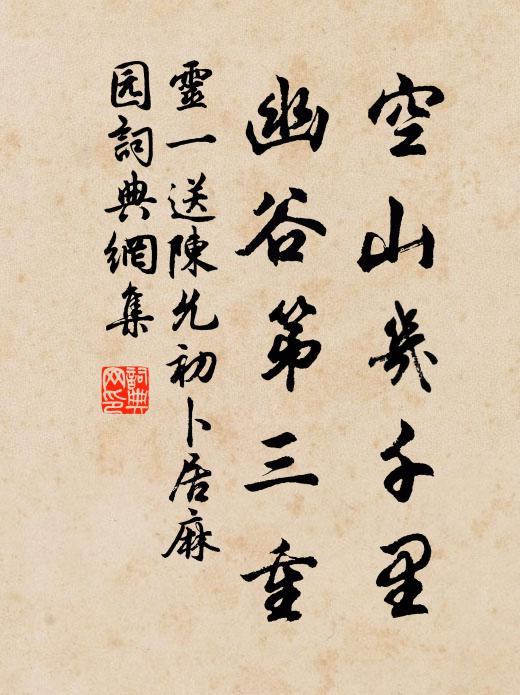 空山幾千里
幽谷第三重
靈一送陳允初卜居麻
园詞典網集
詞典
网印